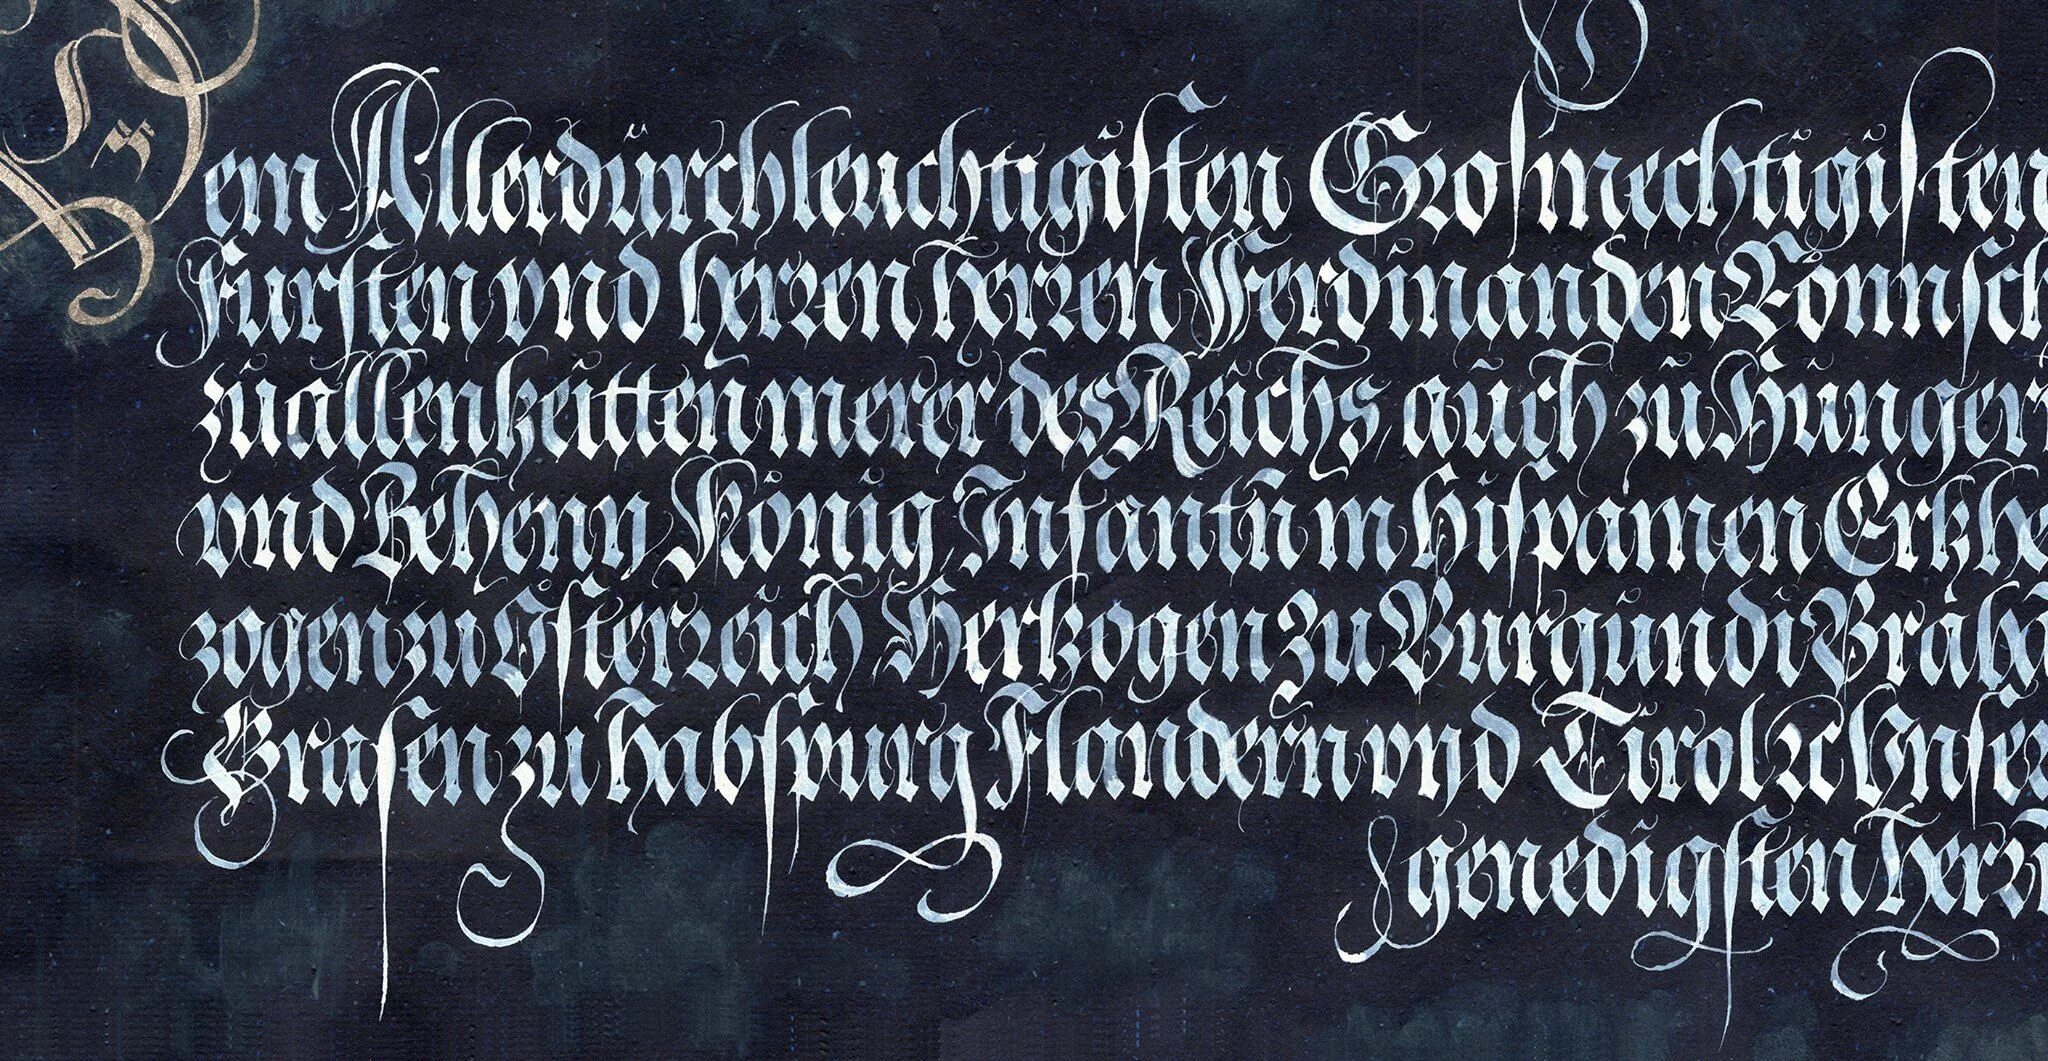 em Allerdurchleuchtigisten Grosmechtigisten
Fursten vnd herren herren Ferdinanden Römisch
zu allen zeitten merer des Reichs auch zu Hunger
vnd Behenn König Infantn in hispanien Ertzhe
zogen zu Österreich Hertzogen zu Burgundi Braba
Grafen zu habspurg Flandern vnd Tirol ꝛc Unser
genedigsten herr